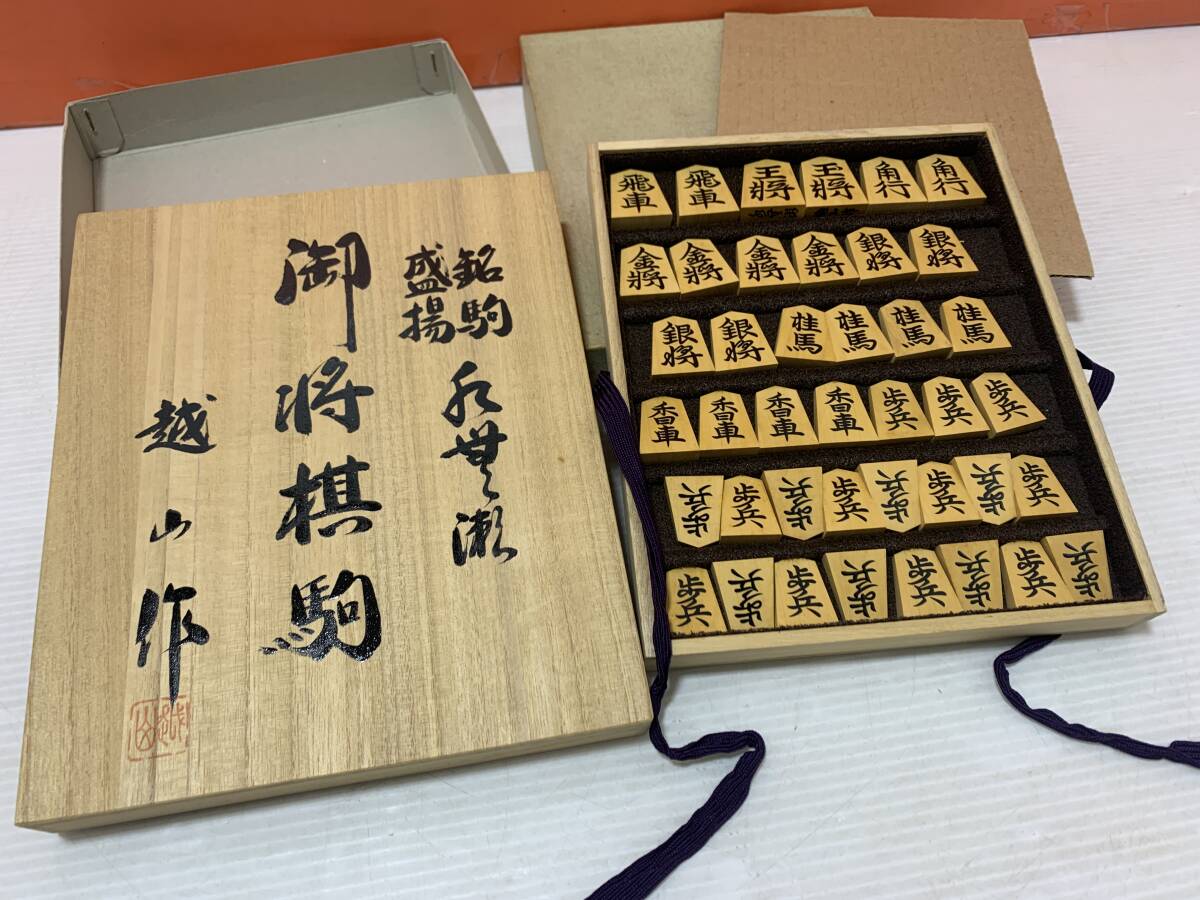 銘駒 水無瀬
盛揚
御将棋駒
越山作
越山
飛車 飛車 王將 王將 角行 角行
金將 金將 金將 金將 銀将 銀将
銀将 銀将 桂馬 桂馬 桂馬 桂馬
香車 香車 香車 香車 歩兵 歩兵 歩兵
歩兵 歩兵 歩兵 歩兵 歩兵 歩兵 歩兵 歩兵
歩兵 歩兵 歩兵 歩兵 歩兵 歩兵 歩兵 歩兵